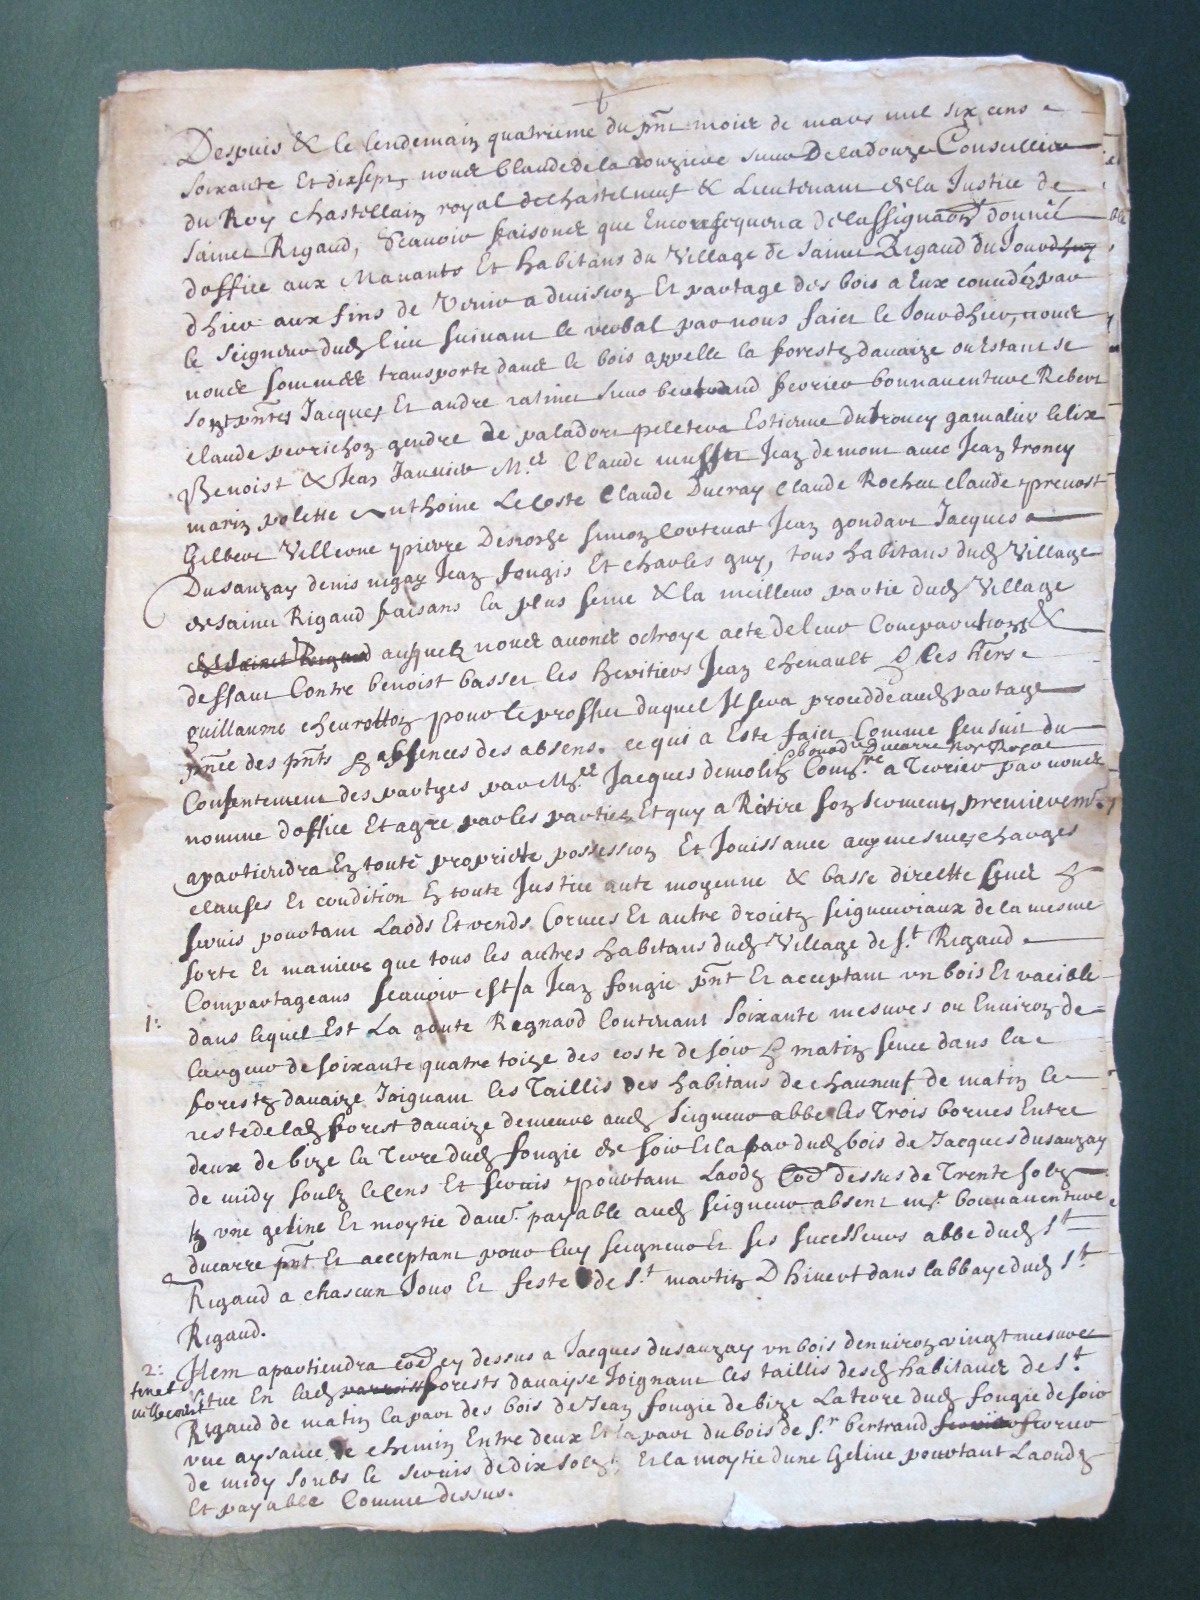 Despuis & le lendemain quatrieme du pñt mois de mars mil six cens
soixante et dixsept, nous Claude de la Rouziere sieur De la douze Conseillier
du Roy chastellain royal de chastelneuf & Lieutenant de la Justice de
sainct Rigaud, Scavoir faisons que En consequence de l'assignaõn donnée
d'office aux Manants Et habitans du Village de sainct Rigaud du Jour
dhier aux fins de venir a division Et partage des bois a Eux par
le seigneur dud lieu suivant le verbal par nous faict le Jourdhier, nous
nous sommes transporte dans le bois appelle la forestz davaize ou Estant se
sont pñtes Jacques Et andre ratinet sieur bertrand fevrier bonnaventure Rebert
claude perrichon gendre de paladore peletera Estienne dutroncy gamalier
Benoist & Jean Janvier M.e Claude Jean demont avec Jean troncy
marin polette Anthoine Lecoste Claude Ducray Claude Rochu claude prevost
Gilbert Villerne pierre Desroche simon Jean gondard Jacques
Dusauzay denis nigay Jean fongis Et charles guy, tous habitans dud Village
de sainct Rigaud faisans la plus seine & la meilleur partie dud Village
de sainct Rigaud ausquels nous avons octroye acte de leur Comparutions &
deffaut Contre benoist basset les heritiers Jean chenault & les hers
guillaume chevrotton pour le proffit duquel Il sera procedde aud partage
pñce des pñts & absences des absens. ce qui a Este faict Comme sensuit du
bonad Ducarre Nor. Royal
Consentement des partyes par M.e Jacques demolin Com.re a Terrier par nous
nomme d'office Et agre par les parties Et quy a Reitire son serment, premierem.t
apartiendra En toute propriete possession Et Jouissance aux mesmes charges
clauses Et condition En toute Justice aute moyenne & basse directte &
servis portant Laods Et vends Corvees Et autre droictz seigneuriaux de la mesme
sorte Et maniere que tous les autres habitans dud Village de S.t Rigaud
Compartageans scavoir est/a Jean fongie pñt Et acceptant un bois Et vacible
1: dans lequel Est La goute Regnaud Contenant soixante mesures ou Environ de
largeur de soixante quatre toize des coste de soir & matin scituee dans la
forestz davaize Joignant les Taillis des habitans de chauneuf de matin le
reste de lad forest davaize demeure aud Seigneur abbe les Trois bornes Entre
deux de bize la Terre dud fongie de soir Et la part dud bois de Jacques dusauzay
de midy soulz le cens Et servis portant Laodz dessus de Trente solz
& une geline Et moytie d'aut. payable aud seigneur absent m.e bonnaventure
ducarre pñt Et acceptant pour luy seigneur Et ses sucesseurs abbe dud S.t
Rigaud a chascun Jour Et feste de S.t martin Dhivert dans labbaye dud S.t
Rigaud.
2: Item apartiendra cy dessus a Jacques dusauzay un bois denviron vingt mesures
situe En lad forests davayse Joignant les taillis desd habitans de S.t
Rigaud de matin la part des bois de Jean fongie de bize La terre dud fongie de soir
une aysance de chemin Entre deux Et la part du bois de S.r bertrand fevrier
de midy soubs le servis de dix solz, Et la moytie dune Geline portant Laoudz
Et payable Comme dessus.